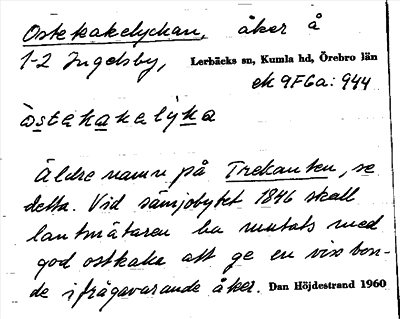 Ostekakelyckan, åker å
1-2 Ingelsby, Lerbäcks sn, Kumla hd, Örebro län
ek 9F6a: 944
òstekakalýka
Äldre namn på Trekanten, se
detta. Vid sämjobytet 1846 skall
lantmätaren ha mutats med
god ostkaka att ge en viss bon-
de ifrågavarande åker. Dan Höjdestrand 1960